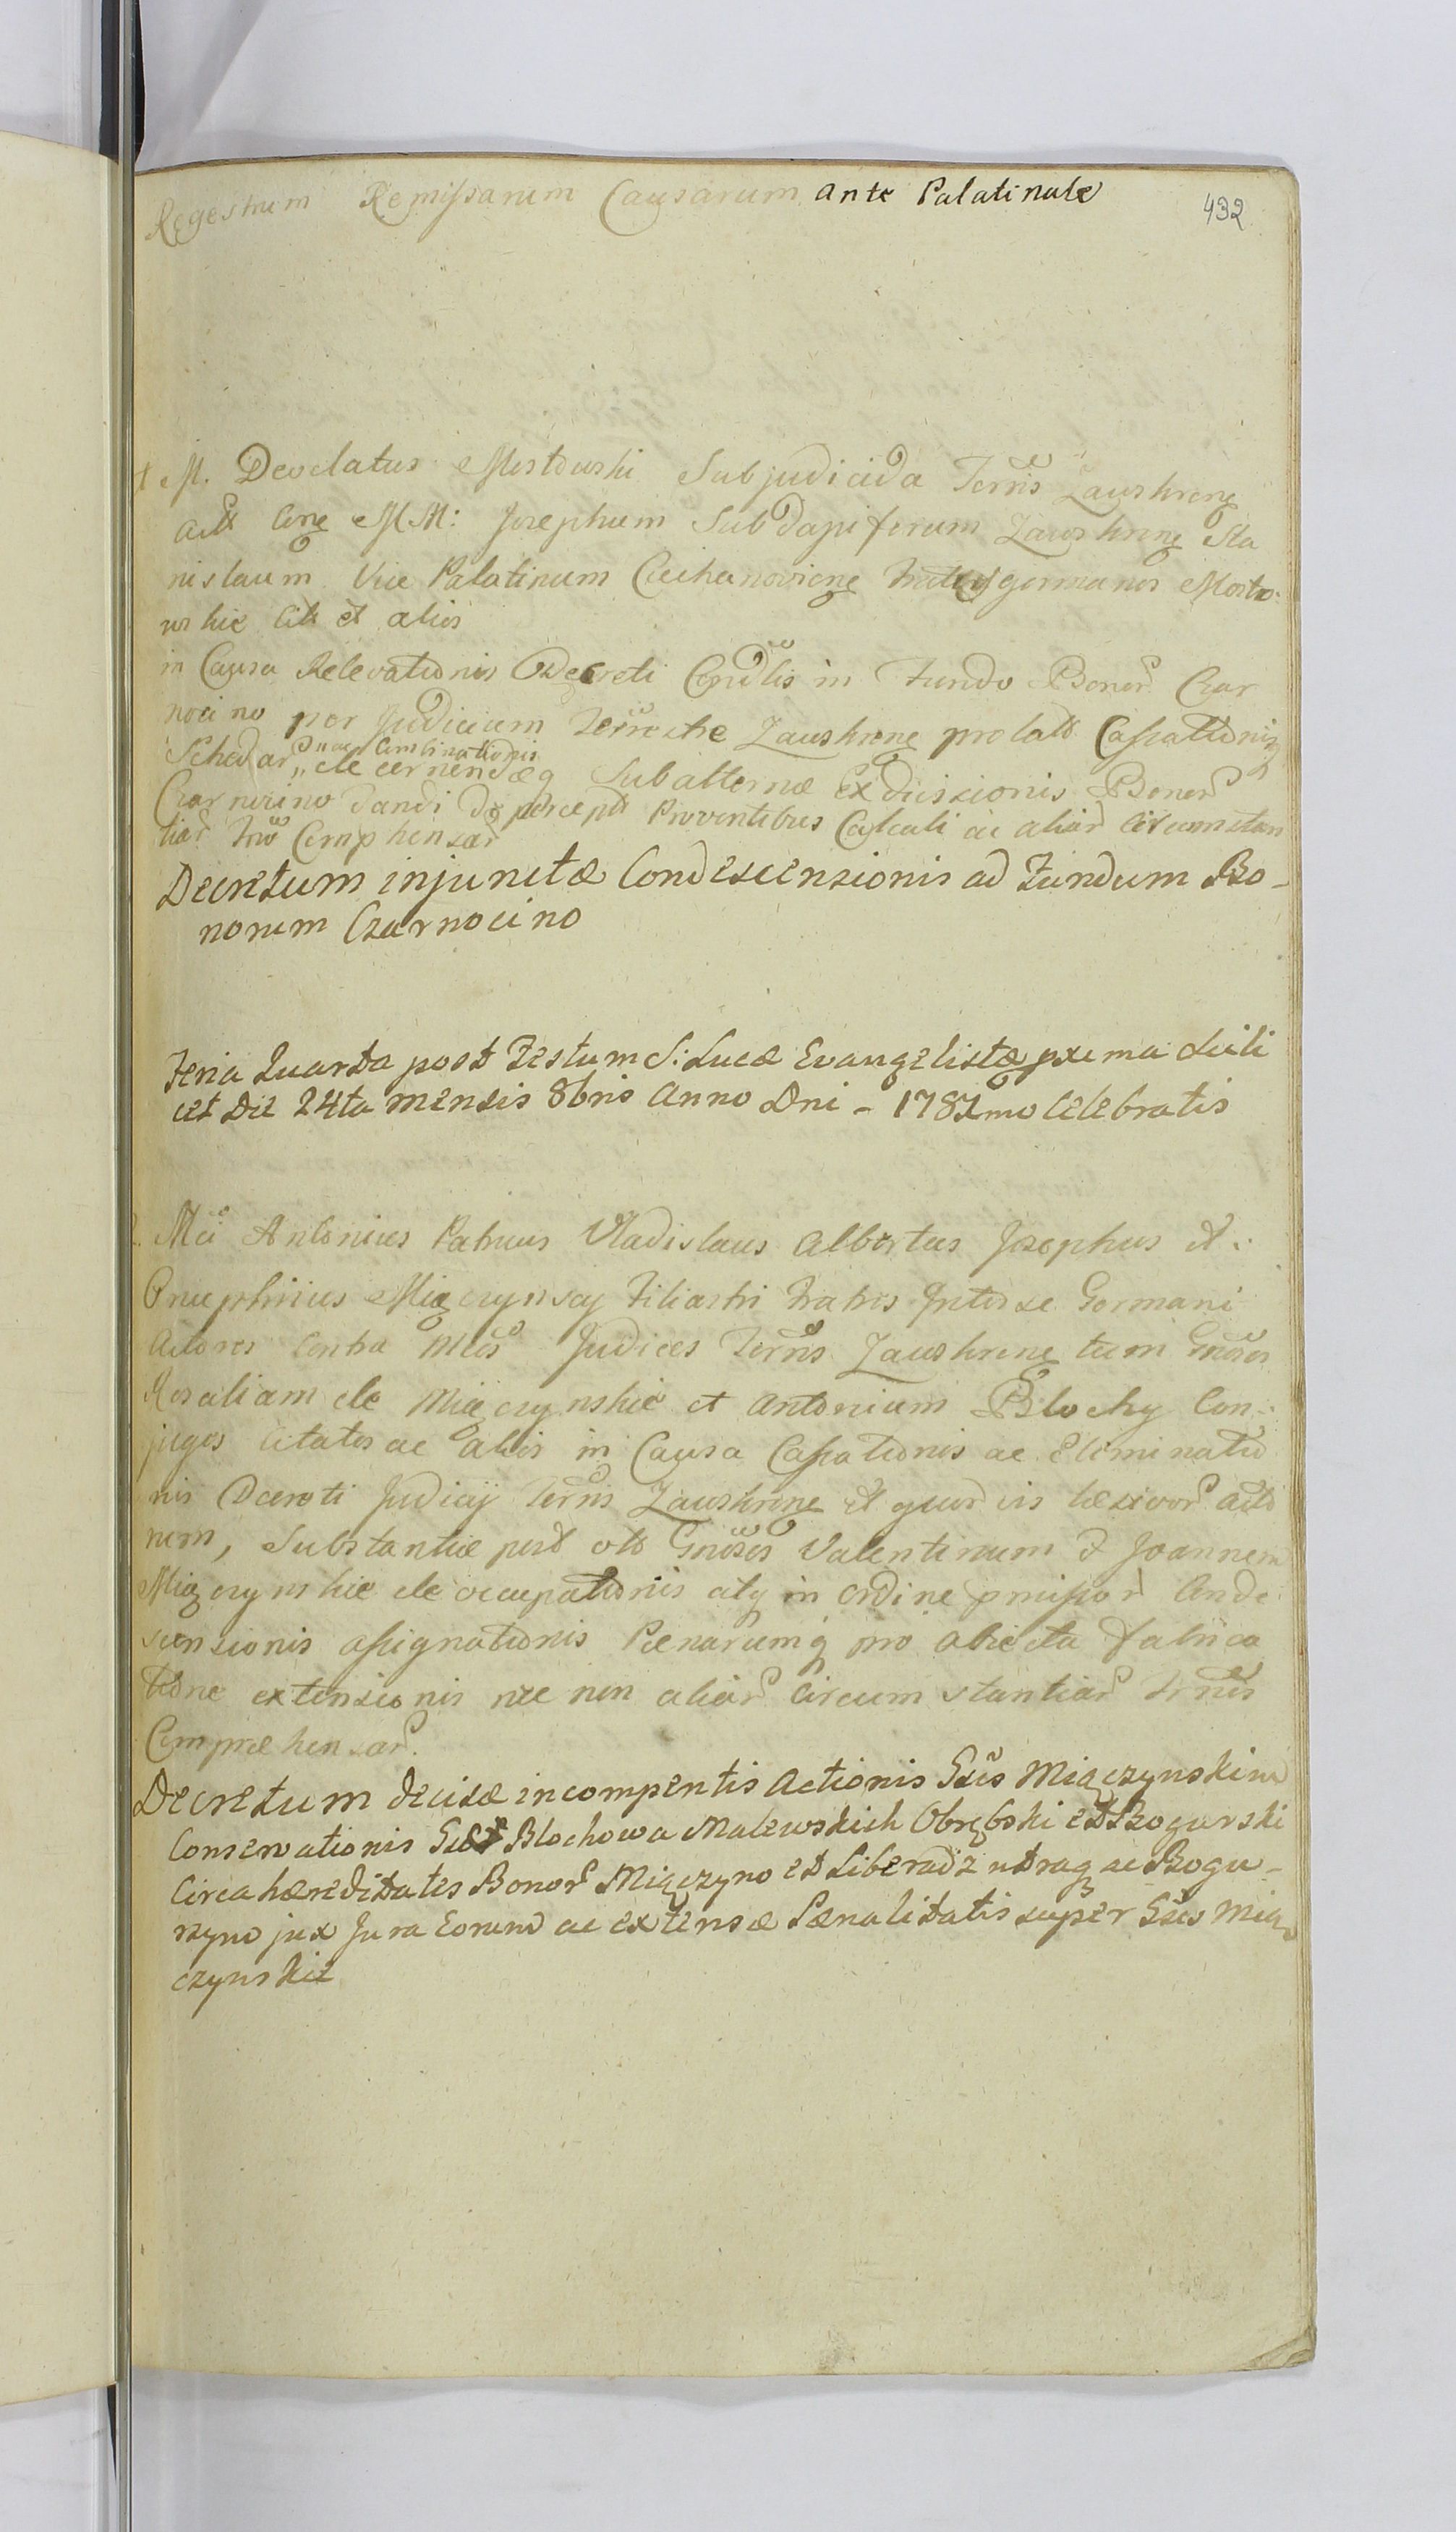 Regestrum Remissarum Causarum ante Palatinale
432
1 M. Deodatus Mostowski Subjudicida Terris Zawskrene
Act Cone MM: Josephum Subdapiferum Zawskrene Sta
nislaum Vice Palatinum Ciechanoviene germanos Mosto
wskie Citt et alios
in Causa Relevationis Decreti Condlis in Fundo Bonor Czar
nocino per Judicium Terrestre Zawskrene prolati Cassationis
Schedar ac Combinationis decernendæq Subalternæ Exdivisionis Bonor
Czarnocino dandi de perceptis Proventibus Calculi ac aliar circumstan
tiar Trwo Comphensar
Decretum injunctæ Condescensionis ad Fundum Bo-
norum Czarnocino
Feria Quarta post Festum S: Lucæ Evangelistæ pxima scili
cet Die 24ta mensis 8bris Anno Dni - 1787mo Celebratis
2. Mci Antonius Patruus Vladislaus Albertus Josephus et
Onuphrius Miączynscy Filiastri Fratres Inter se Germani
Actores Contra Mcos Judices Terris Zawskrene tum Gnosos
Rosaliam de Miączynskie et Antonium Blochy Con:
juges Citatos ac alios in Causa Cassationis ac Eliminatio
nis Decreti Judicij Terris Zawskrene et quorvis læsivor acto
rum, Substantiæ post olt Gnosos Valentinum & Joannem
Miączynskie de occupationis atq in ordine pmissor Conde
scensionis assignationis Pœnarumq pro abiecta Fabrica
tione extensionis nec non aliar Circumstantiar Trwis
Compræhensar.
Decretum decisæ incompentis Actionis Gsis Miączynskim
Conservationis Blochowa Malewskich Obrębski et Bogurski
Circa hæreditates Bonor Miączyno et Liberadz utraq ac Bogu-
szyno jux Jura Eorund ac extensæ Pœnalitatis super Gsos Mią
czynskie